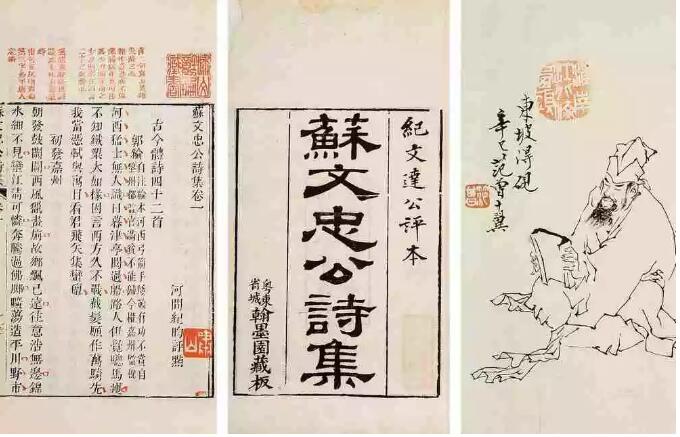 蘇文忠公詩集卷一
河間紀昀評點
古今體詩四十二首
郭綸
自注綸本河西弓箭手屢戰有功不賞自
黎州都監官滿貧不能歸今權嘉州監稅
河西猛士無人識日暮津亭閱過船路人但覺驄馬瘦
不知鐵槊大如椽因言西方久不戰截髮願作萬騎先
我當憑軾與寓目看君飛矢集蠻氈
初發嘉州
朝發鼓闐闐西風獵畫旃故鄉飄已遠往意浩無邊錦
水細不見蠻江清可憐奔騰過佛腳曠蕩造平川野市
紀文達公評本
蘇文忠公詩集
粵東省城翰墨園藏板
東坡得硯
辛巳范曾十翼